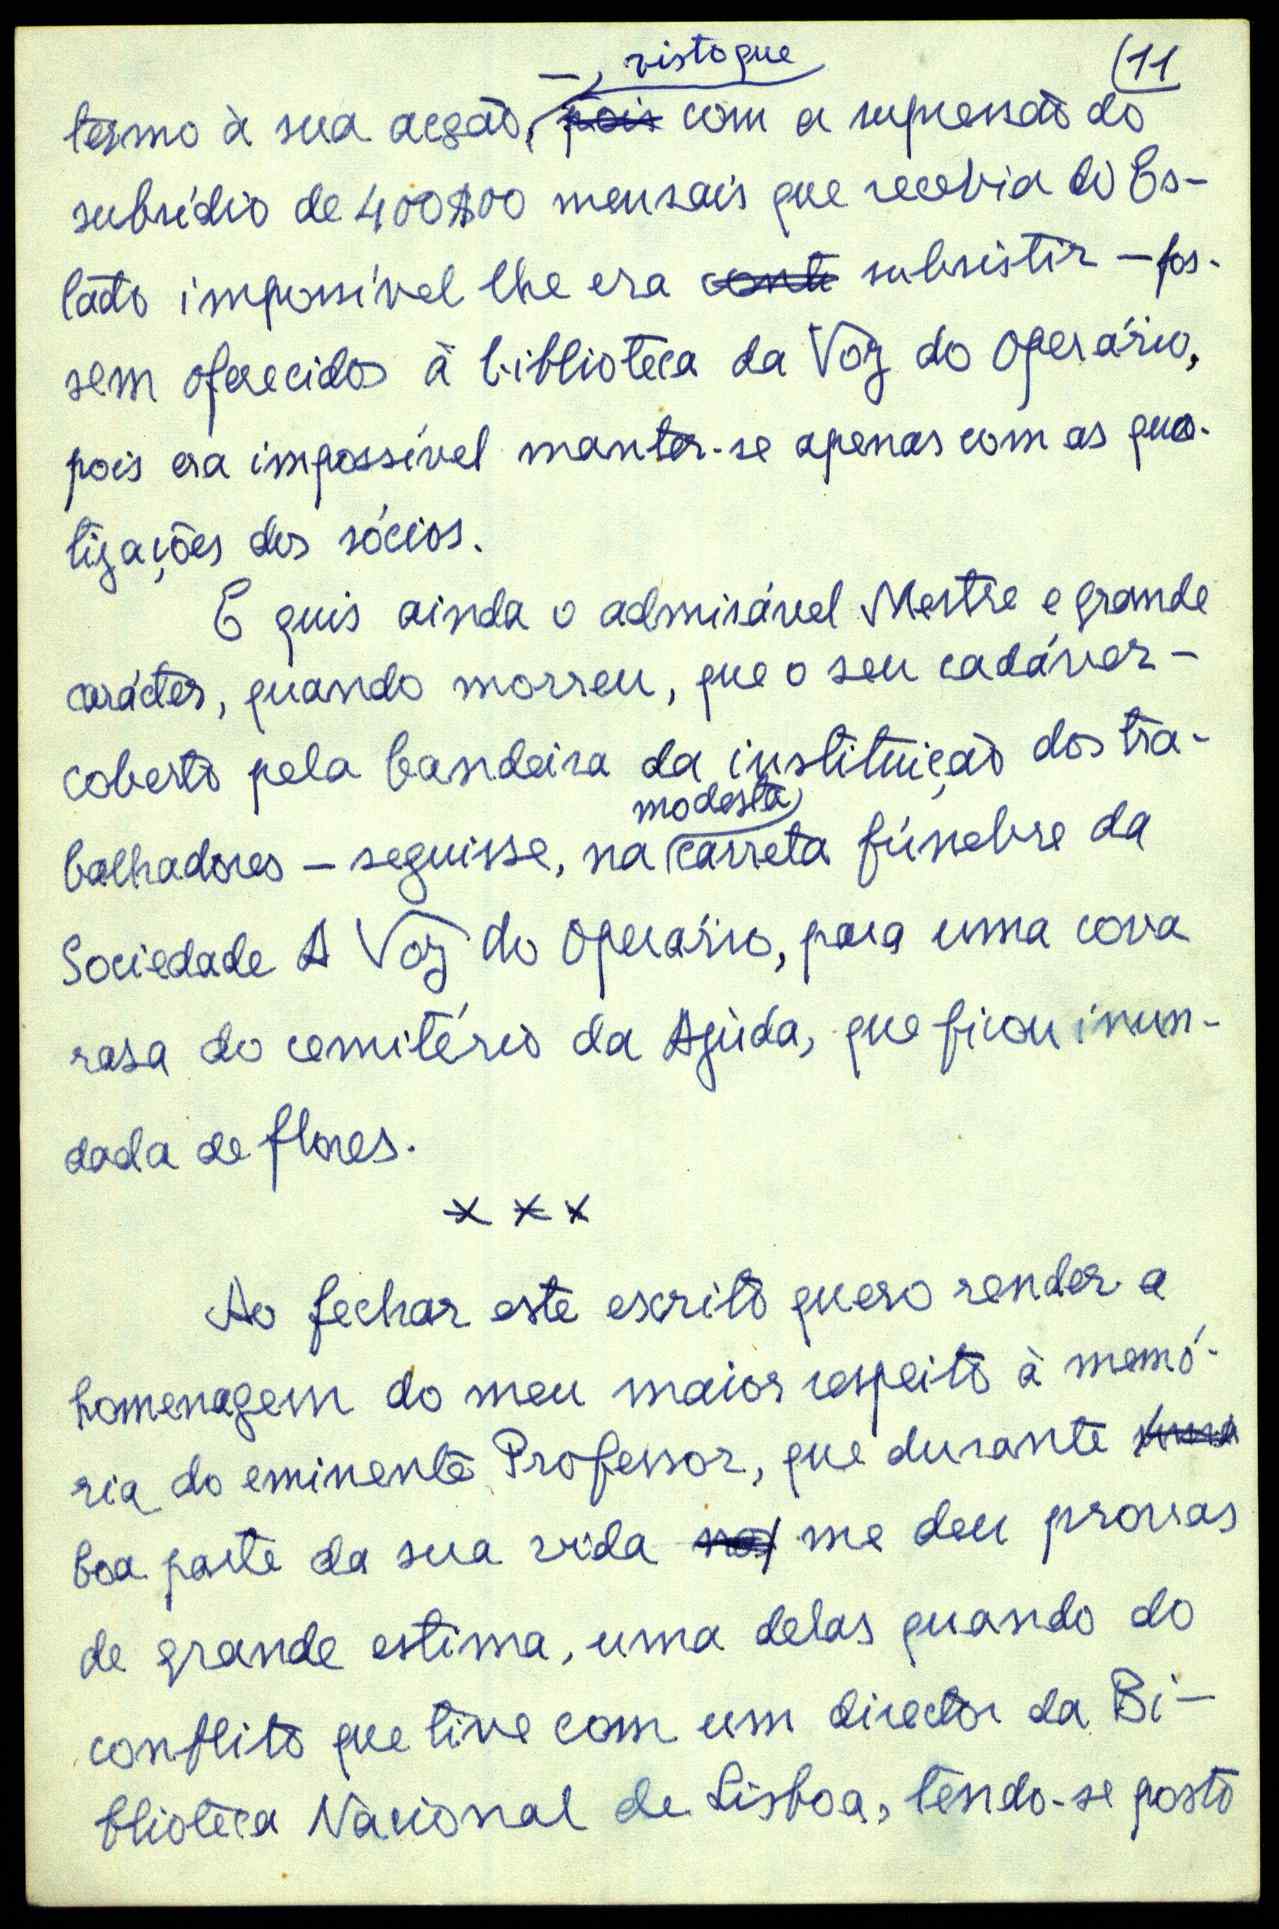 (11
— , visto que
termo à sua acção, pois com a supressão do
subsídio de 400$00 mensais que recebia do Es-
tado impossível lhe era conti subsistir — fos-
sem oferecidos à biblioteca da Voz do Operário,
pois era impossível manter-se apenas com as quo-
tizações dos sócios.
E quis ainda o admirável Mestre e grande
carácter, quando morreu, que o seu cadáver —
coberto pela bandeira da instituição dos tra-
modesta
balhadores — seguisse, na carreta fúnebre da
Sociedade A Voz do Operário, para uma cova
rasa do cemitério da Ajuda, que ficou inun-
dada de flores.
x x x
Ao fechar este escrito quero render a
homenagem do meu maior respeito à memó-
ria do eminente Professor, que durante
boa parte da sua vida me deu provas
de grande estima, uma delas quando do
conflito que tive com um director da Bi-
blioteca Nacional de Lisboa, tendo-se posto